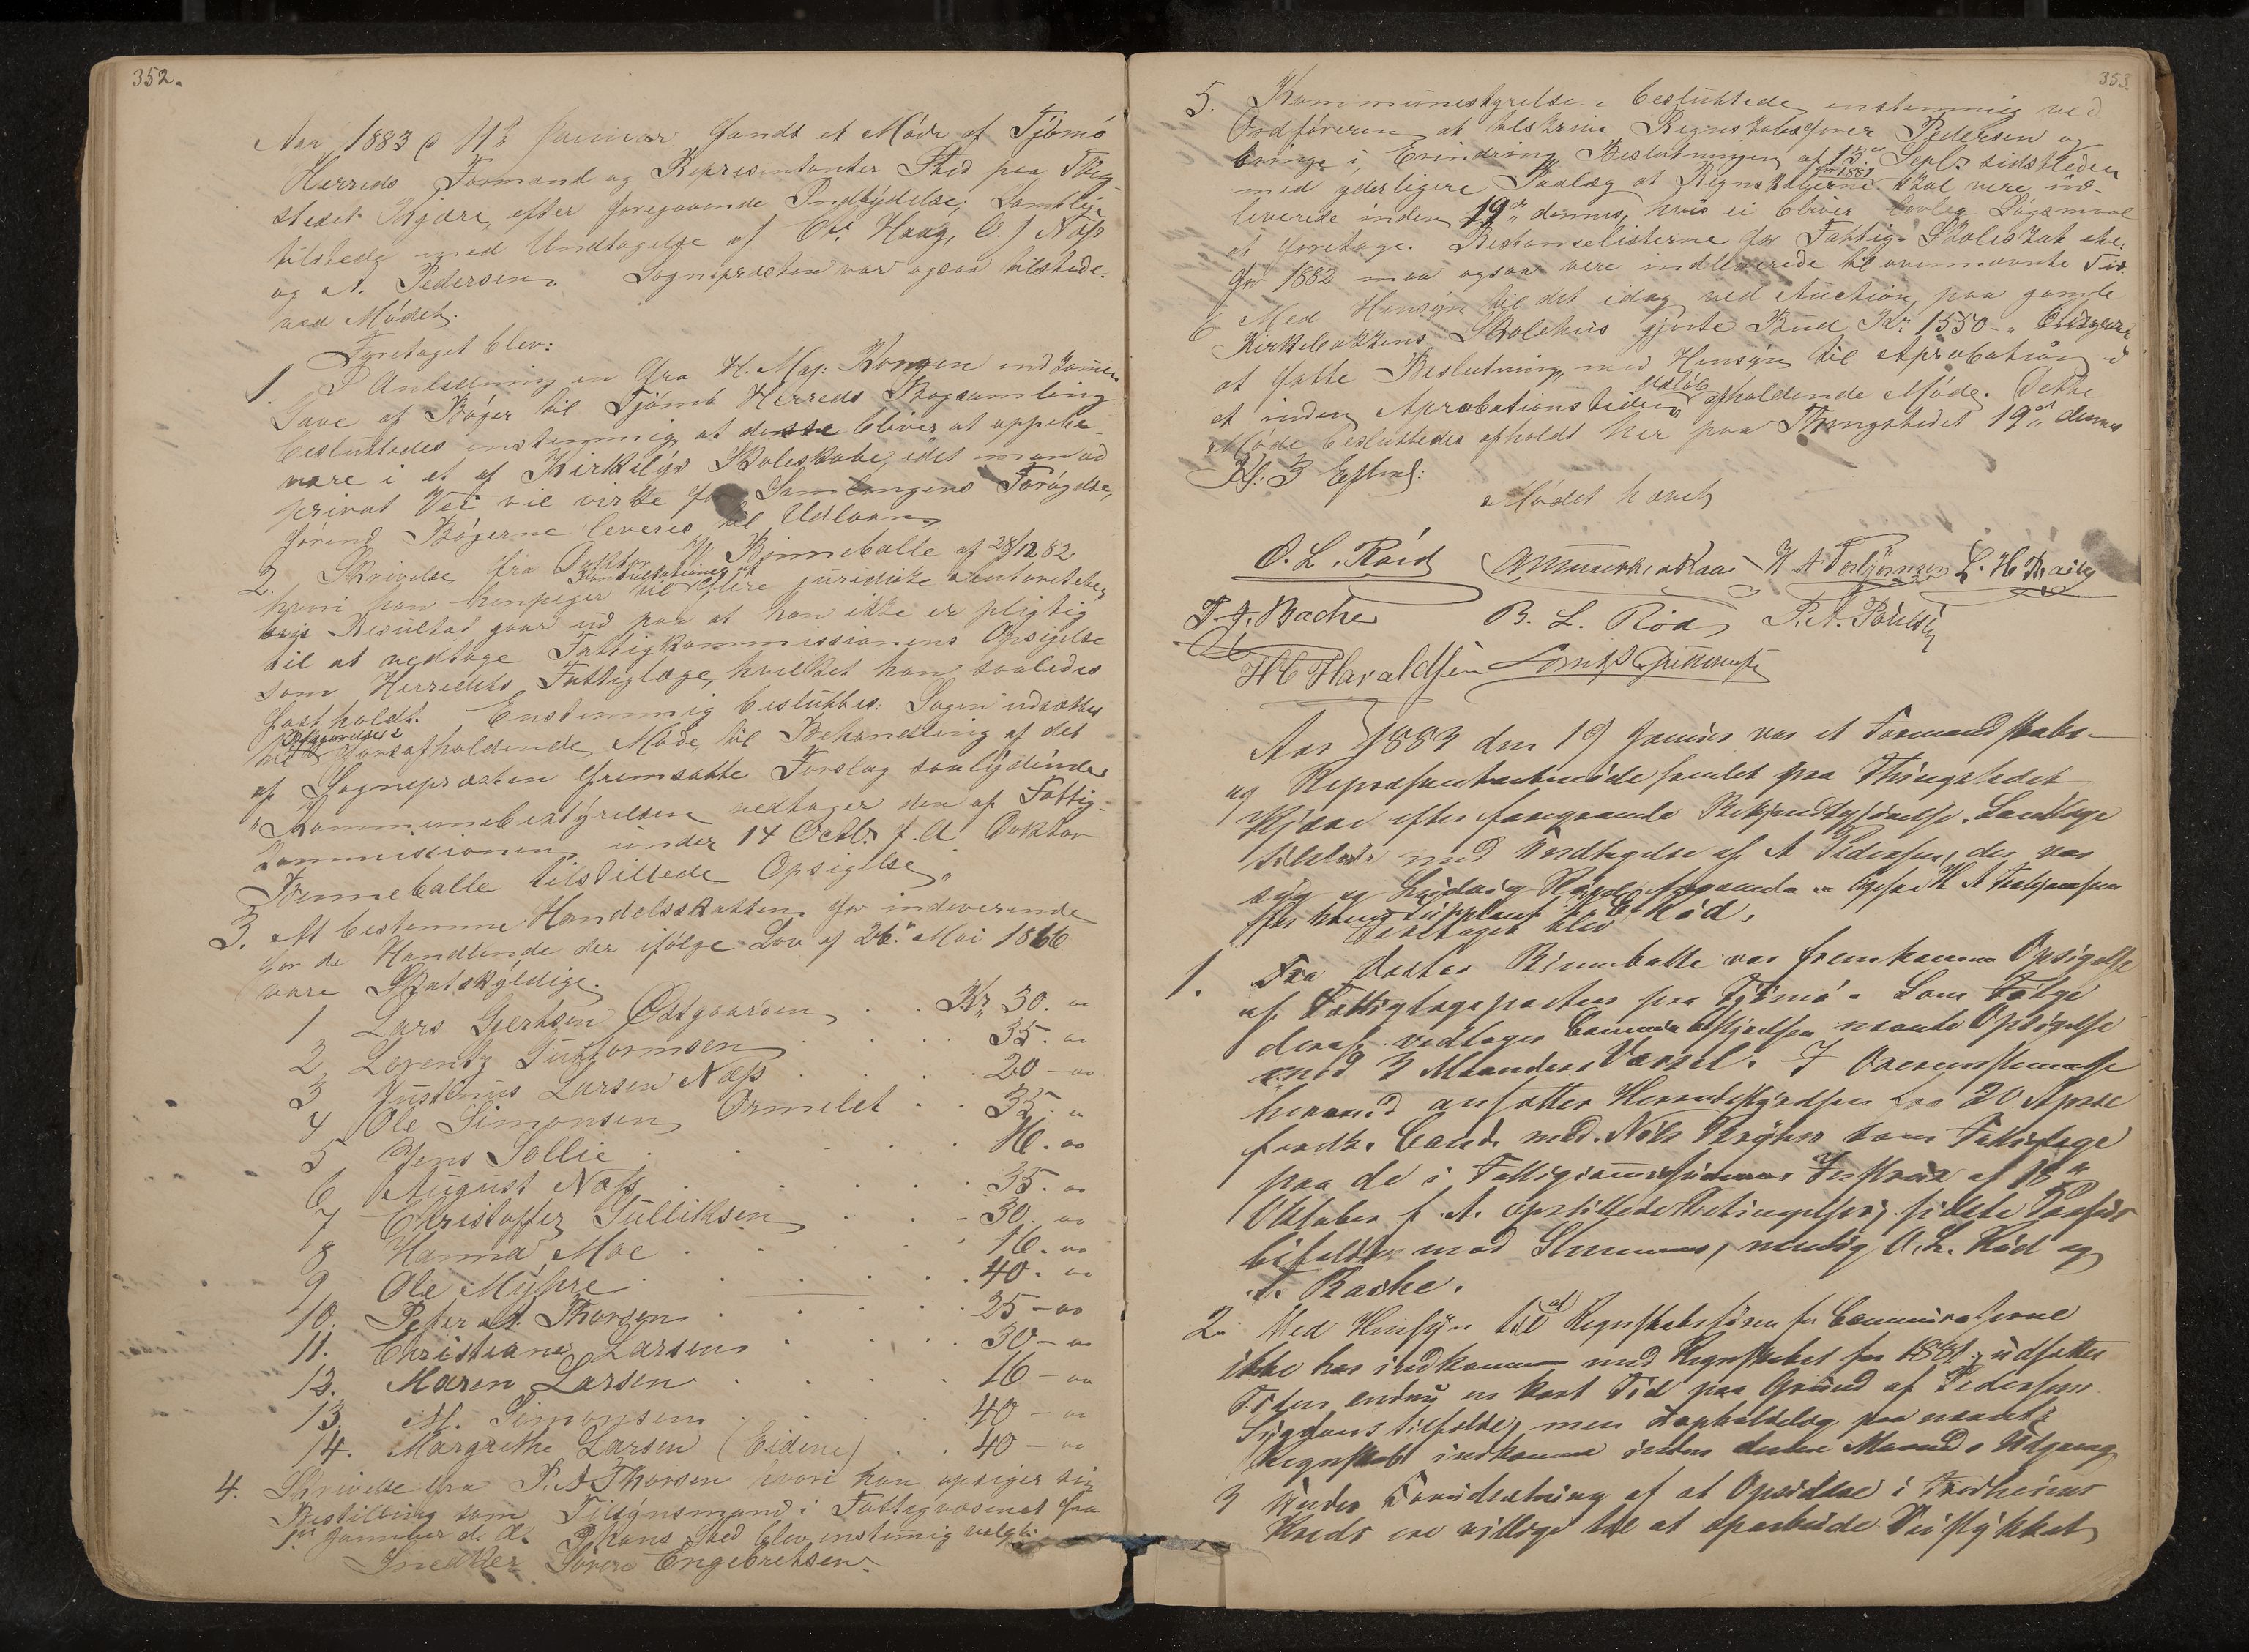 352.
Aar 1883 d. 11te Januar fandt et Möde af Tjömö
Herreds Formand og Representanter Sted paa Thing-
stedet Kjære, efter foregaaende Indbydelse; Samtlige
tilstede med Undtagelse af Chr. Haag, O. J Næss
og A. Pedersen. Sognepræsten var ogsaa tilstede
ved Mödet.
Foretaget blev:
1. I Anledning en fra H. Maj: Kongen indkommen
Gave af Böger til Tjömö Herreds Bogsamling
besluttedes enstemmig at desse bliver at oppeba-
vare i et af Kirkelys Skoleskabe, idet man ad
privat Vei vil virke for Samlingens Forögelse,
förend Bögerne leveres til Udlaan.
2. Skrivelse fra Doktor Binneballe af 28/12 82
hvori han henpeger til Konsultationer af flere juridiske Autoriteter,
hvis Resultat gaar ud paa at han ikke er pligtig
til at vedtage Fattigkommissionens Opsigelse
som Herredets Fattiglæge, hvilket han saaledes
fastholdt. Enstemmig besluttes: Sagen udsættes
til afholdende Möde, til Behandling af det
af Sognepræsten fremsatte Forslag saalydende
"Kommunebestyrelsen vedtager den af Fattig-
kommissionen under 14 Octbr. f. A. Doktor
Binneballe tilstillede Opsigelse"
3. At bestemme Handelsskatten for indeværende
for de Handlende der ifölge Lov af 26de Mai 1866
vare Skatskyldige.
1 Lars Gjertsen Östgaarden . . Kr. 30. "
2 Lorentz Guttormsen . . . . 35. "
3 Justinus Larsen Næss . . . 20 - "
4 Ole Simonsen Ormelet . . 35. "
5 Jens Sollie . . . . 16. "
6 August Næss . . . . 35. "
7 Christoffer Tulliksen . . - 30. "
8 Hanna Moe . . . . 16. "
9 Ole Myhre . . . . 40. "
10. Peter A. Thorsen . . . . 25 - "
11. Christiane Larsen . . . 30 - "
12. Maren Larsen . . . . 16 - "
13. M. Simonsen . . . . 40 - "
14. Margrethe Larsen (Eidene) . . 40 - "
4. Skrivelse fra P. A Thorsen hvori han opsiger sin
Bestilling som Tilsynsmand i Fattigvæsenet fra
1ste Januar d. A. I hans Sted blev enstemmig valgt:
Snedker Sören Engebretsen.
353.
5. Kommunestyrelsen besluttede enstemmig ved
Ordföreren at tilskrive Regnskabsförer Pedersen og
bringe i Erindring Beslutningen af 13de Septbr sidstleden
med yderligere Paalæg at Regnskaberne for 1881 skal være ind-
leverede inden 19de dennes, hvis ei bliver lovlig Sögsmaal
at foretage. Restanselisterne for Fattig- Skoleskat etc.
for 1882 maa ogsaa være indleverede til ovennævnte Tid.
6 Med Hensyn til det idag ved Auction paa gamle
Kirkebakkens Skolehus gjorte Bud Kr. 1550 - "
at fatte Beslutning, med Hensyn til Aprobation i
et inden Aprobationstidens Udlöb afholdende Möde. Dette
Möde besluttedes afholdt her paa Thingstedet 19de dennes
Kl. 3 Eftmd:
Mödet hævet
O. L. Röed H A Torbjörnsen L. H. Bache
T. J. Bache B. L. Röd P. A. Poulsen
H C Haraldsen
Aar 1883 den 19 Januar var et Formandskabs-
og Repræsentantmöde samlet paa Thingstedet
Kjære efter foregaaende Bekjendtgjörelse. Samtlige
tilstede med Undtagelse af A Pedersen, der var
syg og Ludvig
for hans Supleant B. L. Röd.
Foretaget blev
1. Fra Doctor Binneballe var fremkommen Opsigelse
af Fattiglægeposten paa Tjömö. Som Fölge
deraf vedtages Communebestyrelsen nævnte Opsigelse
med 3 Maaneders Varsel. I Overensstemmelse
hermed ansattes Herredsstyrelsen fra 20 April
förstk. Cand. med. Nils som Fattiglæge
paa de i Fattigkommissionens Skrivelse af 18de
Oktober f. A. opstillede Betingelser; sidste Passus
bifaldt mod Stemmer, nemlig O. L. Röd og
T. Bache.
2. Med Hensyn til at Regnskabsföreren for Communekasserne
ikke har indkommen med Regnskabet for 1881, udsættes
Tiden endnu en kort Tid paa Grund af Pedersens
Sygdomstilfælde, men uopholdelig paa nævnte
Regnskab indkomme inden denne Maaneds Udgang
3 Under Forudsætning af at Opsiddere i Fredheims
Kreds ere villige til at oparbeide Veistykket